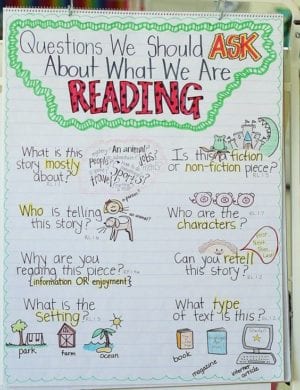 Questions We Should ASK
About What We Are
READING
What is this
story mostly
about?
An animal?
people?
jobs?
travel?
sports?
Is this a fiction
or non-fiction piece?
Who is telling
this story?
a person?
an animal?
Who are the
characters?
RL.1.3
Why are you
reading this piece?
{information OR enjoyment}
Can you retell
this story?
First
Next
Then
Last
What is the
setting?
park
farm
ocean
What type
of text is this?
book
magazine
internet
article